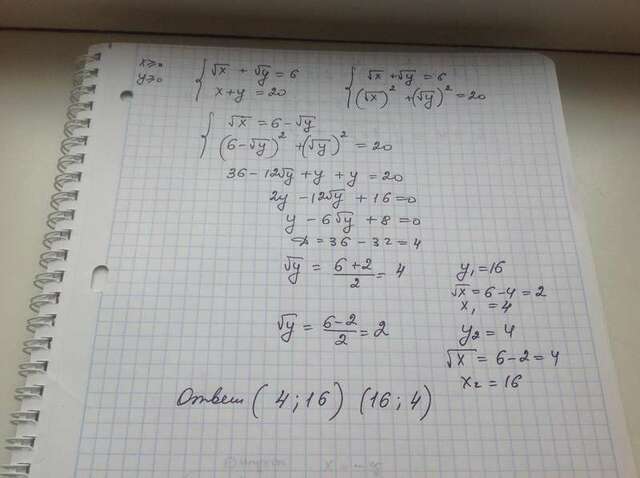 x≥0
y≥0
{ √x + √y = 6
x + y = 20
{ √x + √y = 6
(√x)² + (√y)² = 20
{ √x = 6 - √y
(6 - √y)² + (√y)² = 20
36 - 12√y + y + y = 20
2y - 12√y + 16 = 0
y - 6√y + 8 = 0
D = 36 - 32 = 4
√y = (6+2)/2 = 4
y₁ = 16
√x = 6 - 4 = 2
x₁ = 4
√y = (6-2)/2 = 2
y₂ = 4
√x = 6 - 2 = 4
x₂ = 16
Ответ (4; 16) (16; 4)